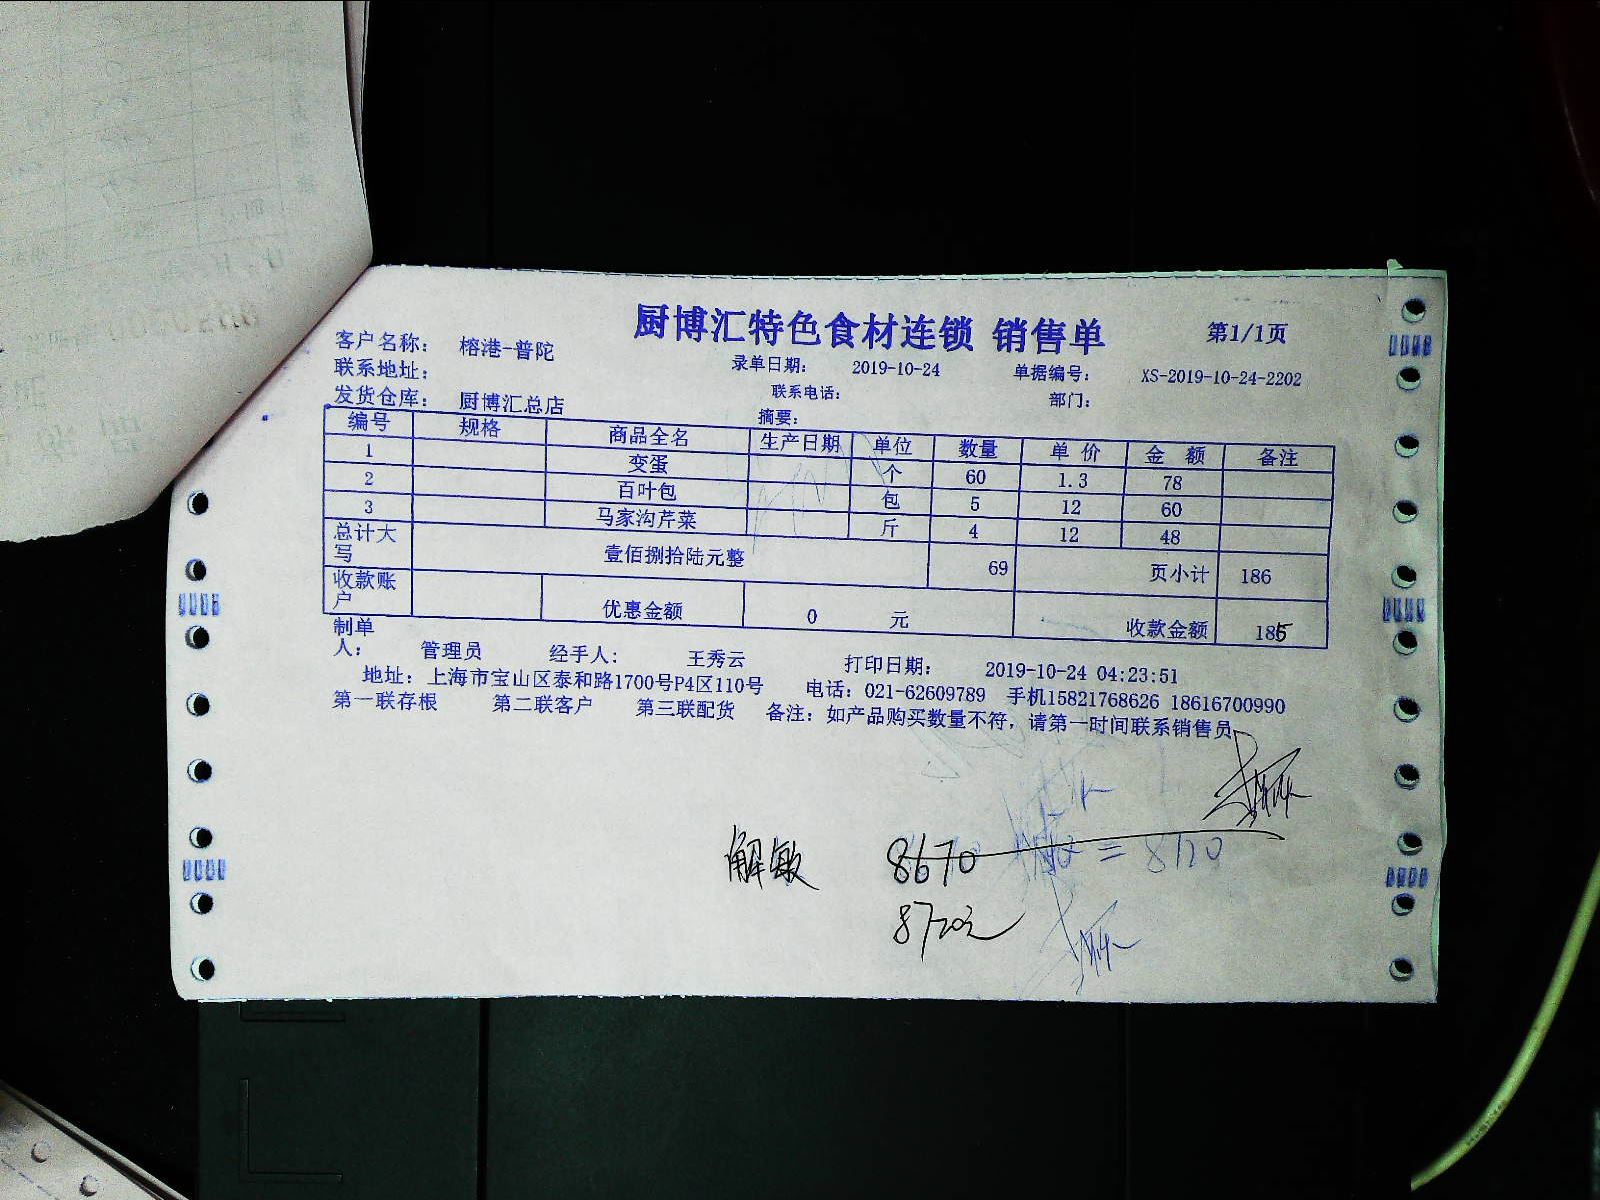 厨博汇特色食材连锁 销售单 第1/1页
客户名称： 榕港-普陀 录单日期： 2019-10-24 单据编号： XS-2019-10-24-2202
联系地址： 联系电话： 部门：
发货仓库： 厨博汇总店 摘要：
编号 规格 商品全名 生产日期 单位 数量 单 价 金 额 备注
1 变蛋 个 60 1.3 78
2 百叶包 包 5 12 60
3 马家沟芹菜 斤 4 12 48
总计大写 壹佰捌拾陆元整 69 页小计 186
收款账户 优惠金额 0 元 收款金额 185
制单人： 管理员 经手人： 王秀云 打印日期： 2019-10-24 04:23:51
地址：上海市宝山区泰和路1700号P4区110号 电话：021-62609789 手机15821768626 18616700990
第一联存根 第二联客户 第三联配货 备注：如产品购买数量不符，请第一时间联系销售员
解敏 8670 = 8120
8720元